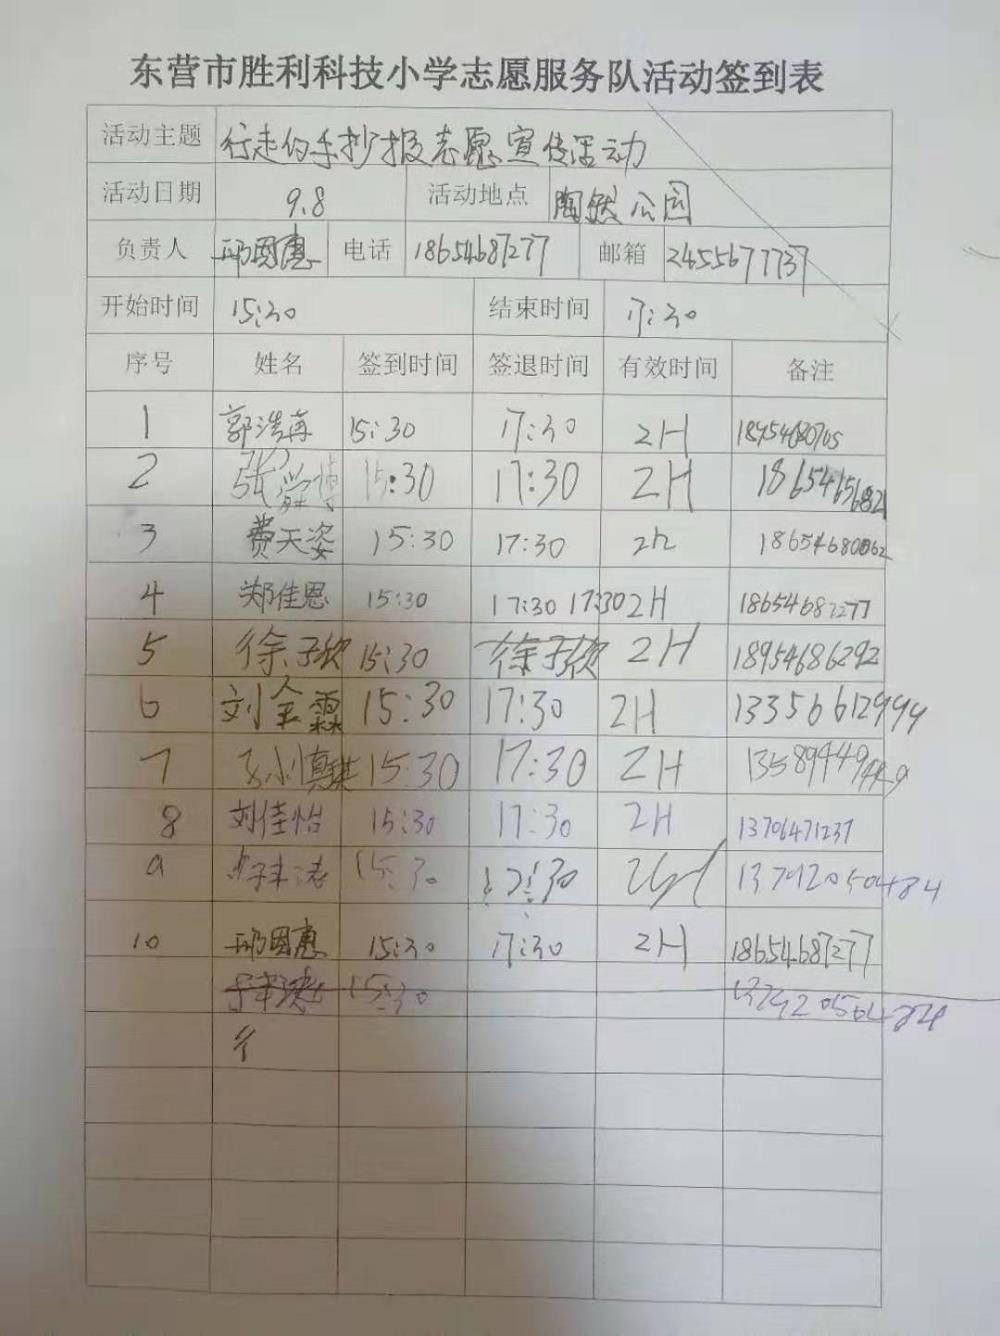 东营市胜利科技小学志愿服务队活动签到表
活动主题 行走的手抄报志愿宣传活动
活动日期 9.8 活动地点 陶然公园
负责人 邱国惠 电话 18654687277 邮箱 2455677737
开始时间 15:30 结束时间 17:30
序号 姓名 签到时间 签退时间 有效时间 备注
1 郭浩苒 15:30 17:30 2H
2 张 15:30 17:30 2H
3 费天姿 15:30 17:30 2h 18654680062
4 郑佳恩 15:30 17:30 17:30 2H 18654687277
5 徐子欣 15:30 徐子欣 2H 18954686292
6 刘金霖 15:30 17:30 2H 13356612994
7 15:30 17:30 2H
8 刘佳怡 15:30 17:30 2H 13706471237
9 15:30 17:30 2H 13792050484
10 邱国惠 15:30 17:30 2H 18654687277
15:30 13792050484